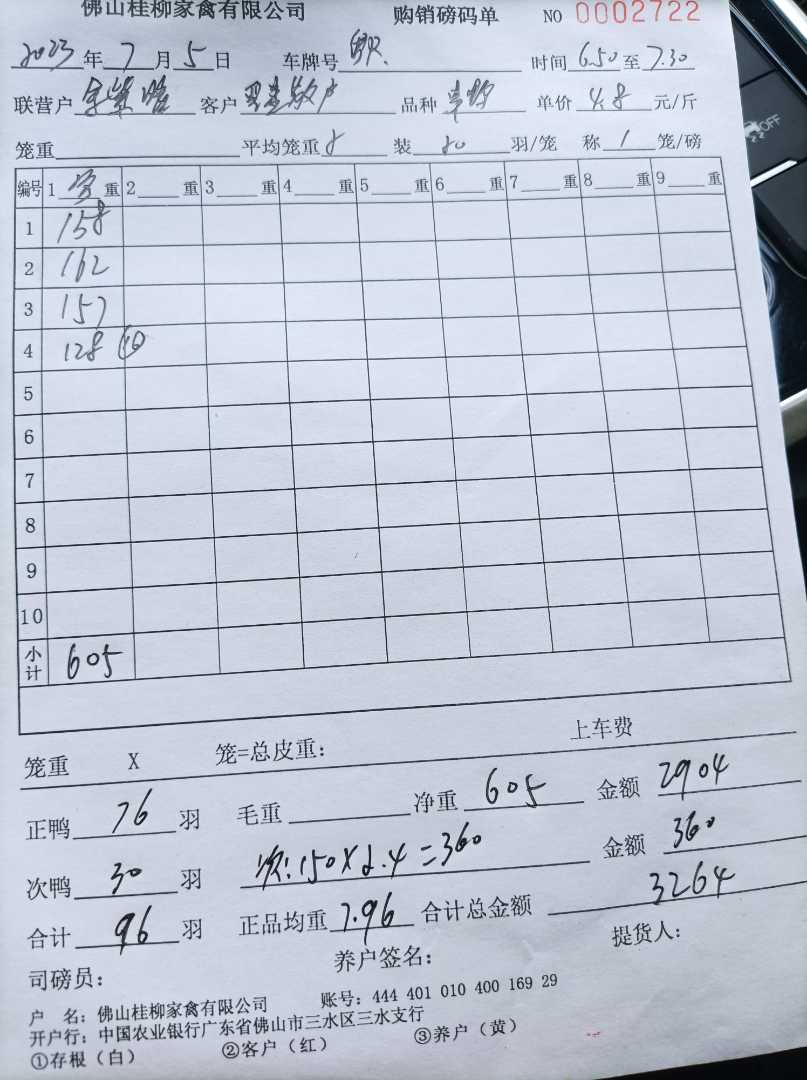 佛山桂柳家禽有限公司 购销磅码单 NO 0002722
2023年7月5日 车牌号 时间6.50至7.30
联营户 客户 品种 单价4.8元/斤
笼重 平均笼重8 装 羽/笼 称1笼/磅
编号 1 重 2 重 3 重 4 重 5 重 6 重 7 重 8 重 9 重
1 158
2 162
3 157
4 128
5
6
7
8
9
10
小计 605
上车费
笼重 X 笼=总皮重:
正鸭76羽 毛重 净重605 金额2904
次鸭30羽 次:150X2.4=360 金额360
合计96羽 正品均重7.96 合计总金额3264
司磅员: 养户签名: 提货人:
户 名:佛山桂柳家禽有限公司 账号:444 401 010 400 169 29
开户行:中国农业银行广东省佛山市三水区三水支行
①存根(白) ②客户(红) ③养户(黄)
OFF